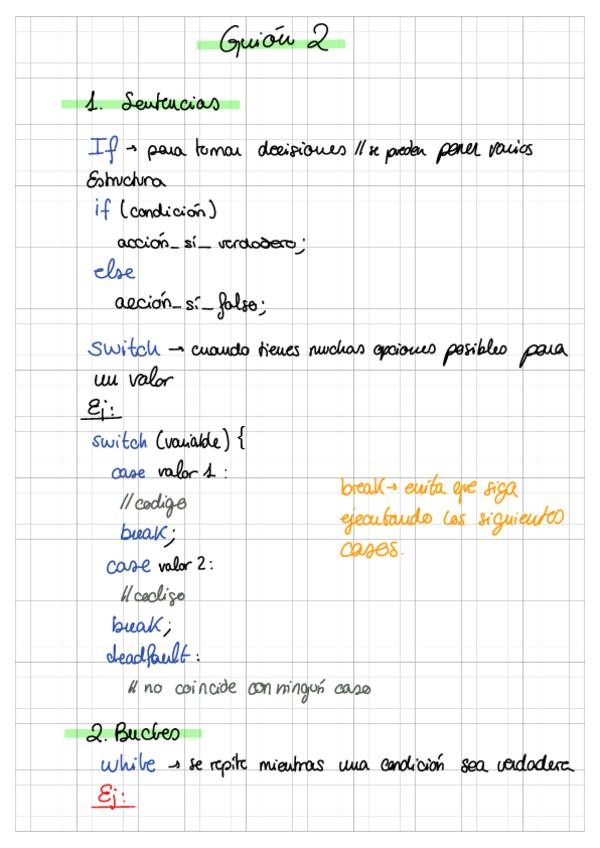 Guión 2
1. Sentencias
If → para tomar decisiones // se pueden poner varios
Estructura
if (condición)
acción_sí_verdadero;
else
acción_sí_falso;
switch → cuando tienes muchas opciones posibles para
un valor
Ej:
switch (variable) {
case valor 1:
//codigo
break;
case valor 2:
//codigo
break;
deadfault:
// no coincide con ningún caso
break → evita que siga
ejecutando los siguientes
cases.
2. Bucles
while → se repite mientras una condición sea verdadera
Ej: